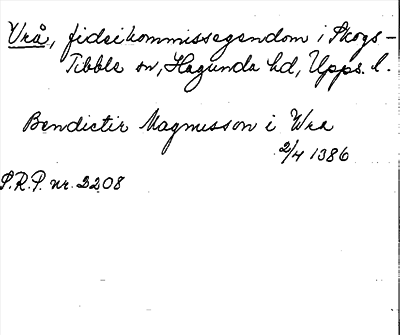 Vrå, fideikommissegendom i Skogs-
Tibble sn, Hagunda hd, Upps. l.
Bendictir Magnusson i Wra
2/4 1386
S.R.P. nr. 2208